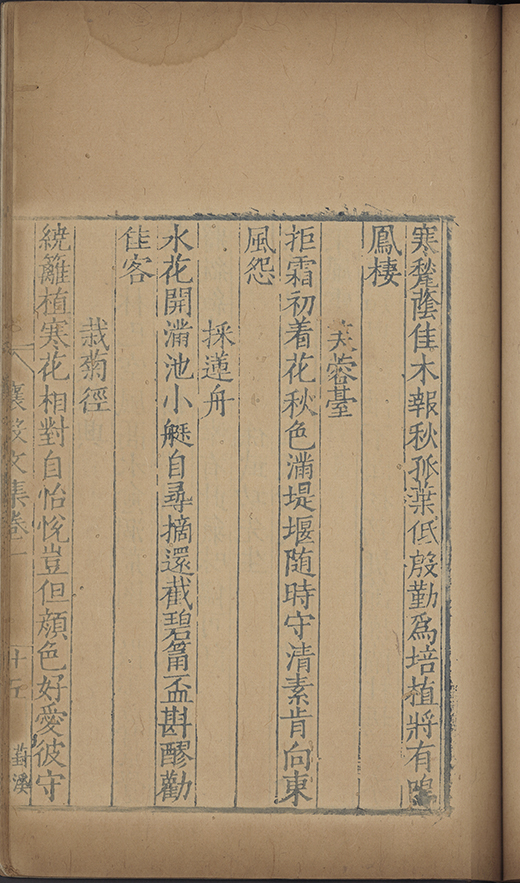 寒甃蔭佳木報秋孤葉低殷勤爲培植將有鳴
鳳棲
芙蓉臺
拒霜初着花秋色滿堤堰隨時守清素肯向東
風怨
採蓮舟
水花開滿池小艇自尋摘還截碧筩盃斟醪勸
佳客
栽菊徑
繞籬植寒花相對自怡悅豈但顔色好愛彼守
襄毅文集卷一
十五